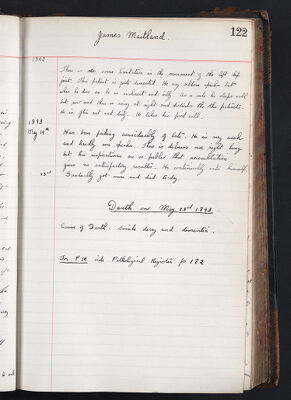 122
James Maitland.
1892.
There is also some limitation in the movement of the left hip
joint. This patient is quite demented. He very seldom speaks but
when he does so he is incoherent and silly. As a rule he sleeps well
but now and then is noisy at night and disturbs the other patients.
He is often wet and dirty. He takes his food well.
1893
May 10th Has been failing considerably of late. He is very weak
and hardly ever speaks. There is dulness over right lung
but his respirations are so feeble that auscultation
gives no satisfactory results. He continually wets himself.
13th Gradually got worse and died to-day.
Death on May 13th 1893.
Cause of Death. Senile decay and dementia.
For P.M. vide Pathological Register p 182